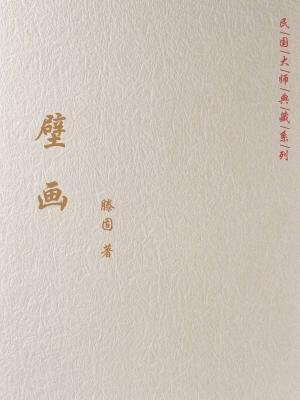 民国大师典藏系列
壁画
滕固 著